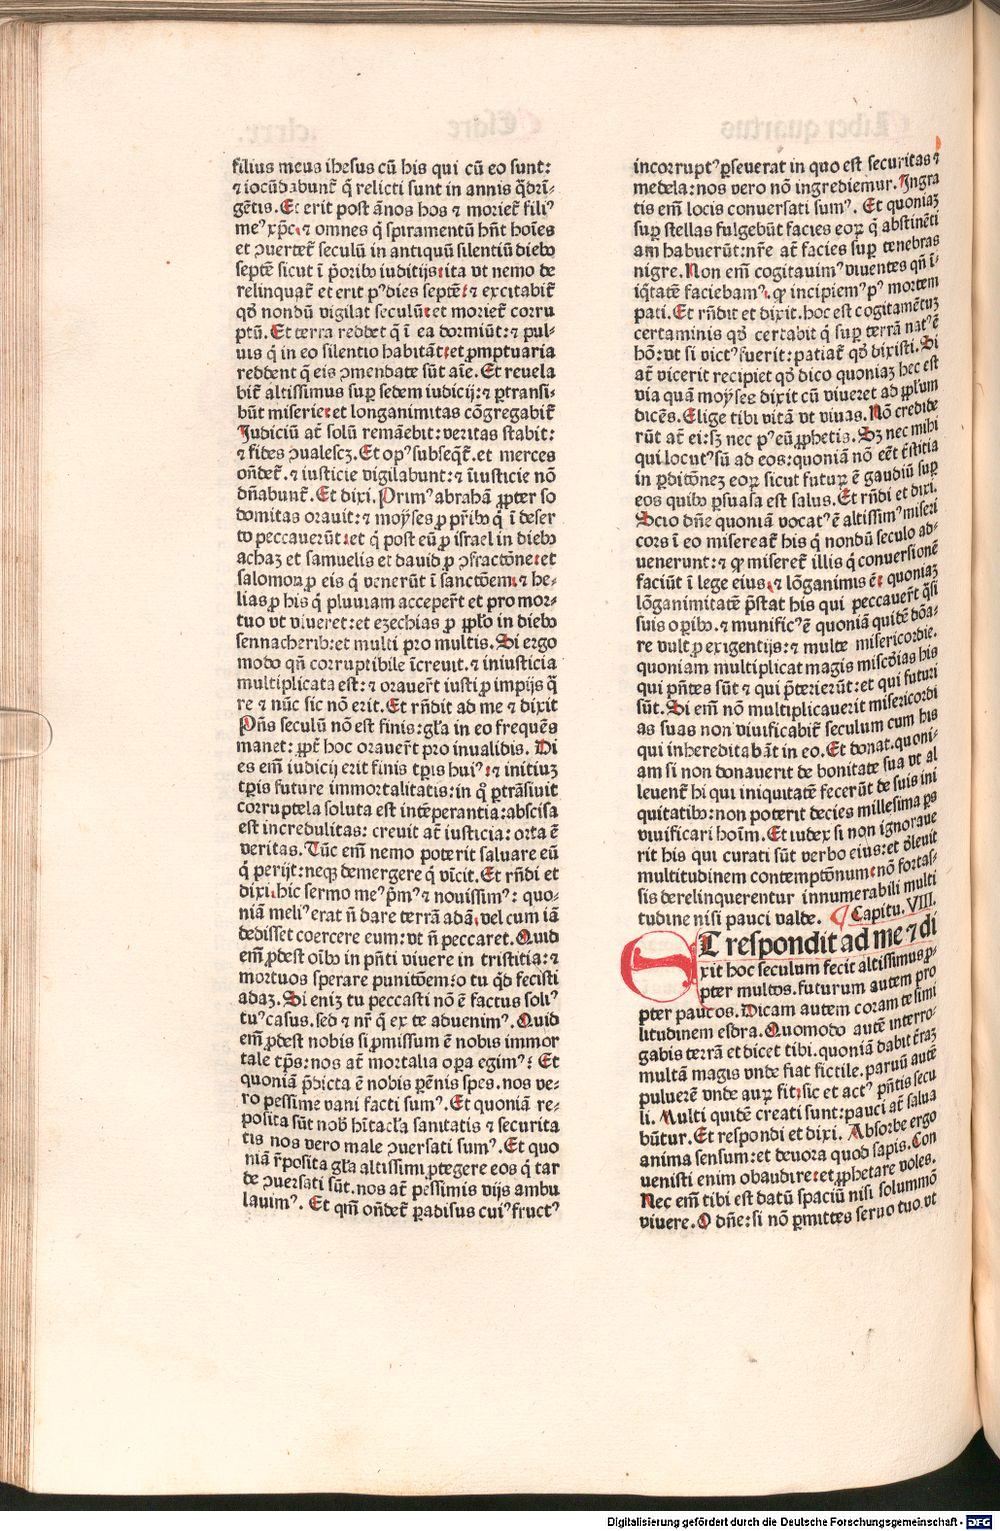 filius meus ihesus cū his qui cū eo sunt:
⁊ iocūdabunt᷑ q̄ relicti sunt in annis q̄drī-
gētis. Et erit post ānos hos ⁊ moriet᷑ fili⁹
me⁹ xp̄c. ⁊ omnes q̄ spiramentū hn̄t hoīes
et ꝯuertet᷑ seculū in antiquū silentiū dieb⁹
septē sicut ī p̄orib⁹ iuditijs: ita vt nemo de
relinquat᷑ et erit p⁹ dies septē: ⁊ excitabit᷑
qd̄ nondū vigilat seculū: et moriet᷑ corru
ptū. Et terra reddet q̄ ī ea dormiūt: ⁊ pul-
uis q̄ in eo silentio habitāt: et ꝓmptuaria
reddent q̄ eis ꝯmendate sūt aīe. Et reuela
bit᷑ altissimus suꝑ sedem iudicij: ⁊ ꝑtransi-
būt miserie: et longanimitas cōgregabit᷑
Iudiciū at̄ solū remāebit: veritas stabit:
⁊ fides ꝯualescꝫ. Et op⁹ subseq̄t᷑. et merces
on̄det᷑. ⁊ iusticie vigilabunt: ⁊ iīusticie nō
dn̄abunt᷑. Et dixi. Prim⁹ abrahā ꝓpter so
domitas orauit: ⁊ moyses ꝓ pr̄ib⁹ q̄ ī deser
to peccauerūt: et q̄ post eū ꝓ israel in dieb⁹
achaz et samuelis et dauid ꝓ ꝯfractōne: et
salomon ꝓ eis q̄ venerūt ī sanctōem: ⁊ he-
lias ꝓ his q̄ pluuiam acceper̄t et pro mor-
tuo vt viueret: et ezechias ꝓ ꝓplo in dieb⁹
sennacherib: et multi pro multis. Si ergo
modo qn̄ corruptibile īcreuit. ⁊ iniusticia
multiplicata est: ⁊ orauer̄t iusti ꝓ impijs q̄
re ⁊ nūc sic nō erit. Et rn̄dit ad me ⁊ dixit
Pn̄s seculū nō est finis: gl̄a in eo frequēs
manet: ꝓpt᷑ hoc orauer̄t pro inualidis. Di
es em̄ iudicij erit finis tp̄ris hui⁹: ⁊ initiuꝫ
tp̄ris future immortalitatis: in q̄ ꝑtrāsiuit
corruptela soluta est intēperantia: abscisa
est incredulitas: creuit at̄ iusticia: orta ē
veritas. Tūc em̄ nemo poterit saluare eū
q̄ perijt: neqꝫ demergere q̄ vīcit. Et rn̄di et
dixi. hic sermo me⁹ p̄m⁹ ⁊ nouissim⁹: quo-
niā meli⁹ erat n̄ dare terrā adā. vel cum iā
dedisset coercere eum: vt n̄ peccaret. Quid
em̄ ꝓdest oīb⁹ in pn̄ti viuere in tristitia: ⁊
mortuos sperare punitōem: o tu qd̄ fecisti
adaꝫ. Si eniꝫ tu peccasti nō ē factus soli⁹
tu⁹ casus. sed ⁊ nr̄ q̄ ex te aduenim⁹. Quid
em̄ ꝓdest nobis si ꝓmissum ē nobis immor
tale tp̄s: nos at̄ mortalia oꝑa egim⁹: Et
quoniā p̄dicta ē nobis ꝑēnis spes. nos ve-
ro pessime vani facti sum⁹. Et quoniā re-
posita sūt nob̄ hītacl̄a sanitatis ⁊ securita
tis nos vero male ꝯuersati sum⁹. Et quo
niā r̄posita gl̄a altissimi ꝓtegere eos q̄ tar
de ꝯuersati sūt. nos at̄ pessimis vijs ambu
lauim⁹. Et qm̄ on̄det᷑ ꝑadisus cui⁹ fruct⁹
incorrupt⁹ ꝑseuerat in quo est securitas ⁊
medela: nos vero nō ingrediemur. Ingra
tis em̄ locis conuersati sum⁹. Et quoniaꝫ
suꝑ stellas fulgebūt facies eoꝝ q̄ abstinēti
am habuerūt: nr̄e at̄ facies suꝑ tenebras
nigre. Non em̄ cogitauim⁹ viuentes qn̄ ī-
iq̄tatē faciebam⁹. ꝙ incipiem⁹ p⁹ mortem
pati. Et rn̄dit et dixit. hoc est cogitamētuꝫ
certaminis qd̄ certabit q̄ suꝑ terrā nat⁹ ē
hō: vt si vict⁹ fuerit: patiat᷑ qd̄ dixisti. Si
at̄ vicerit recipiet qd̄ dico quoniaꝫ hec est
via quā moyses dixit cū viueret ad ꝓpl̄um
dicēs. Elige tibi vitā vt viuas. Nō credide
rūt at̄ ei: sꝫ nec p⁹ eū ꝓphetis. Sꝫ nec mihi
qui locut⁹ sū ad eos: quoniā nō eēt t᷑stitia
in ꝑditōneꝫ eoꝝ sicut futuꝝ ē gaudiū suꝑ
eos quib⁹ ꝑsuasa est salus. Et rn̄di et dixi.
Scio dn̄e quoniā vocat⁹ ē altissim⁹ miseri
cors ī eo misereat᷑ his q̄ nondū seculo ad-
uenerunt: ⁊ ꝙ miseret᷑ illis q̄ conuersionē
faciūt ī lege eius. ⁊ lōganimis ē: quoniaꝫ
lōganimitatē p̄stat his qui peccauer̄t q̄si
suis oꝑib⁹. ⁊ munific⁹ ē quoniā quidē dōa-
re vult ꝓ exigentijs: ⁊ multe misericordie.
quoniam multiplicat magis misc̄dias his
qui pn̄tes sūt ⁊ qui p̄terierūt: et qui futuri
sūt. Si em̄ nō multiplicauerit misericordi
as suas non viuificabit᷑ seculum cum his
qui inhereditabāt in eo. Et donat. quoni-
am si non donauerit de bonitate sua vt al
leuent᷑ hi qui iniquitatē fecerūt de suis ini
quitatib⁹: non poterit decies millesima ꝑs
viuificari hoīm. Et iudex si non ignoraue
rit his qui curati sūt verbo eius: et d̄leuit
multitudinem contemptōnum: nō fortas-
sis derelinquerentur innumerabili multi
tudine nisi pauci valde. ¶ Capitu. VIII.
Et respondit ad me ⁊ di
xit hoc seculum fecit altissimus ꝓ-
pter multos. futurum autem pro
pter paucos. Dicam autem coram te simi
litudinem esdra. Quomodo autē interro-
gabis terrā et dicet tibi. quoniā dabit t᷑raꝫ
multā magis vnde fiat fictile. paruū autē
puluerē vnde auꝝ fit: sic et act⁹ pn̄tis secu
li. Multi quidē creati sunt: pauci at̄ salua
būtur. Et respondi et dixi. Absorbe ergo
anima sensum: et deuora quod sapis. Con
uenisti enim obaudire: et ꝓphetare voles.
Nec em̄ tibi est datū spaciū nisi solummō
viuere. O dn̄e: si nō ꝑmittes seruo tuo vt
Digitalisierung gefördert durch die Deutsche Forschungsgemeinschaft - DFG